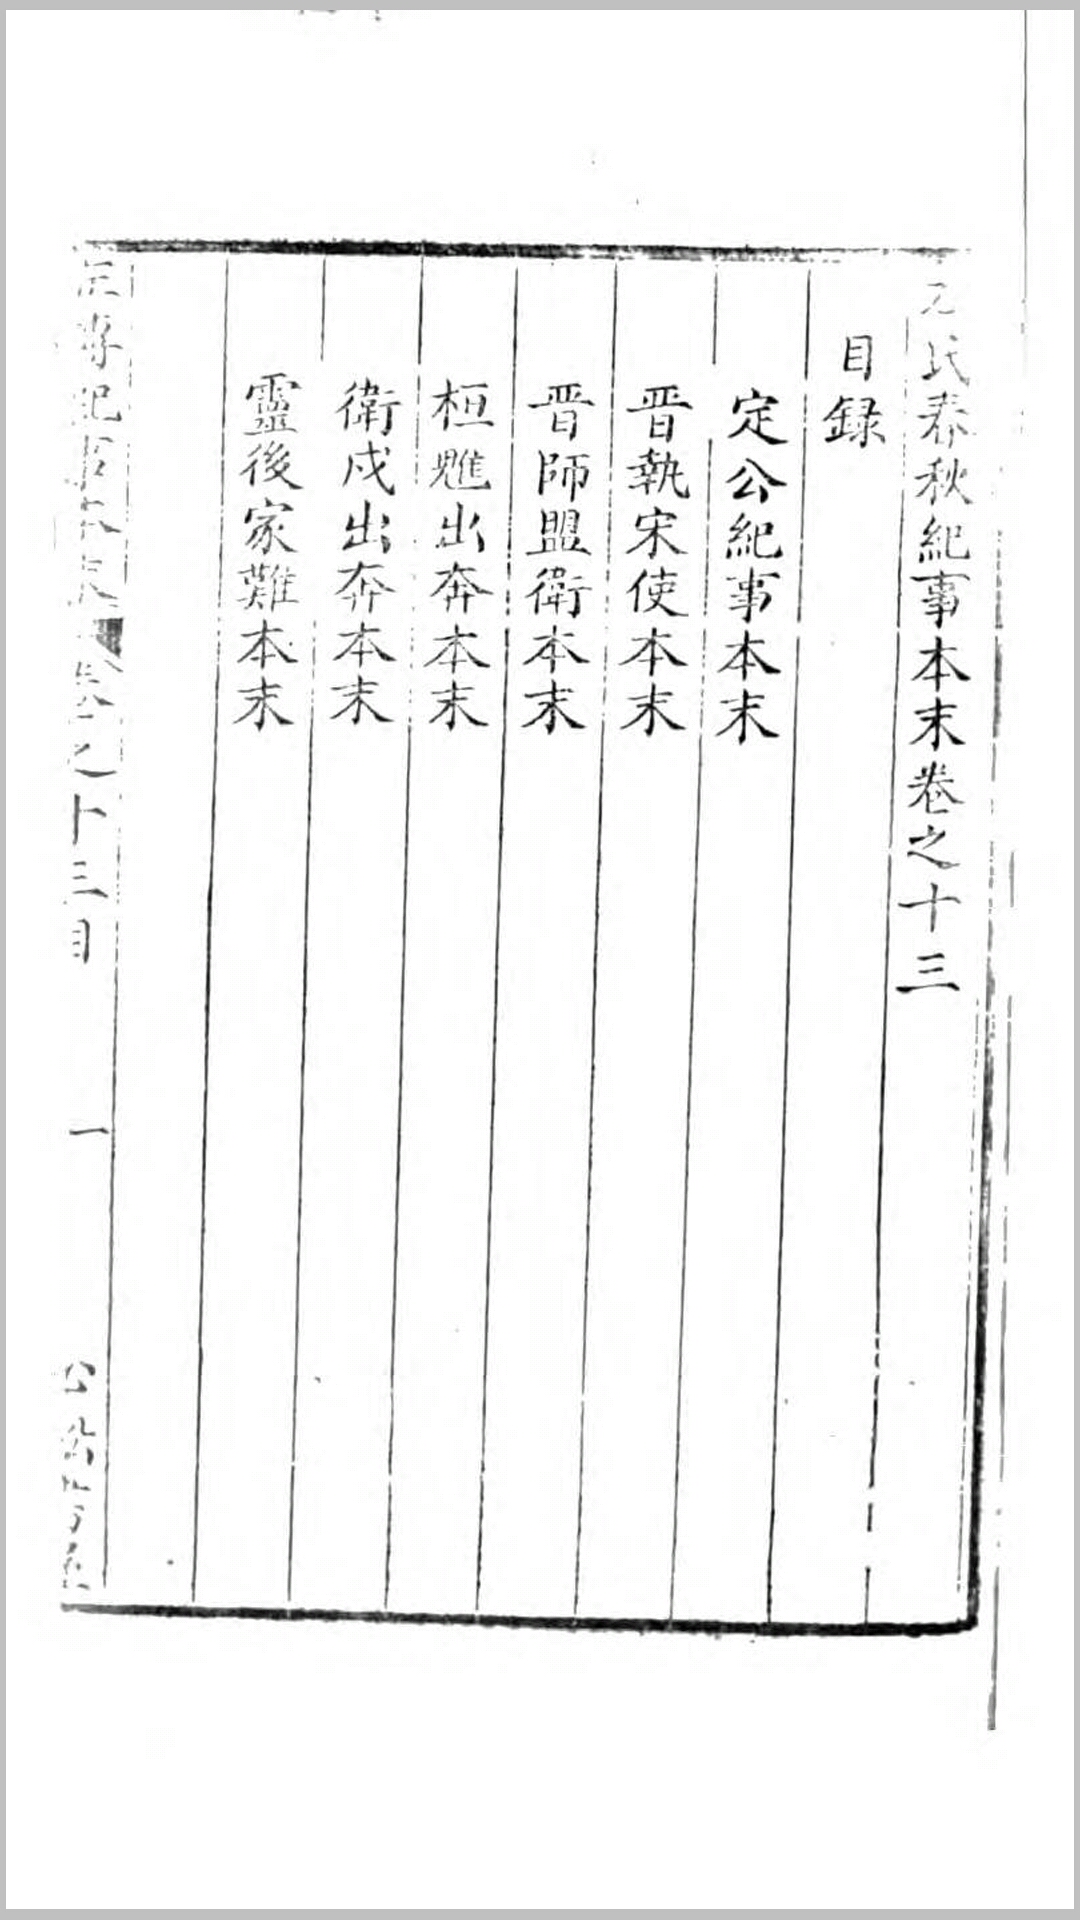 氏春秋紀事本末卷之十三
目録
定公紀事本末
晋執宋使本末
晋師盟衛本末
桓魋出奔本末
衛戍出奔本末
靈後家難本末
之十三目
一